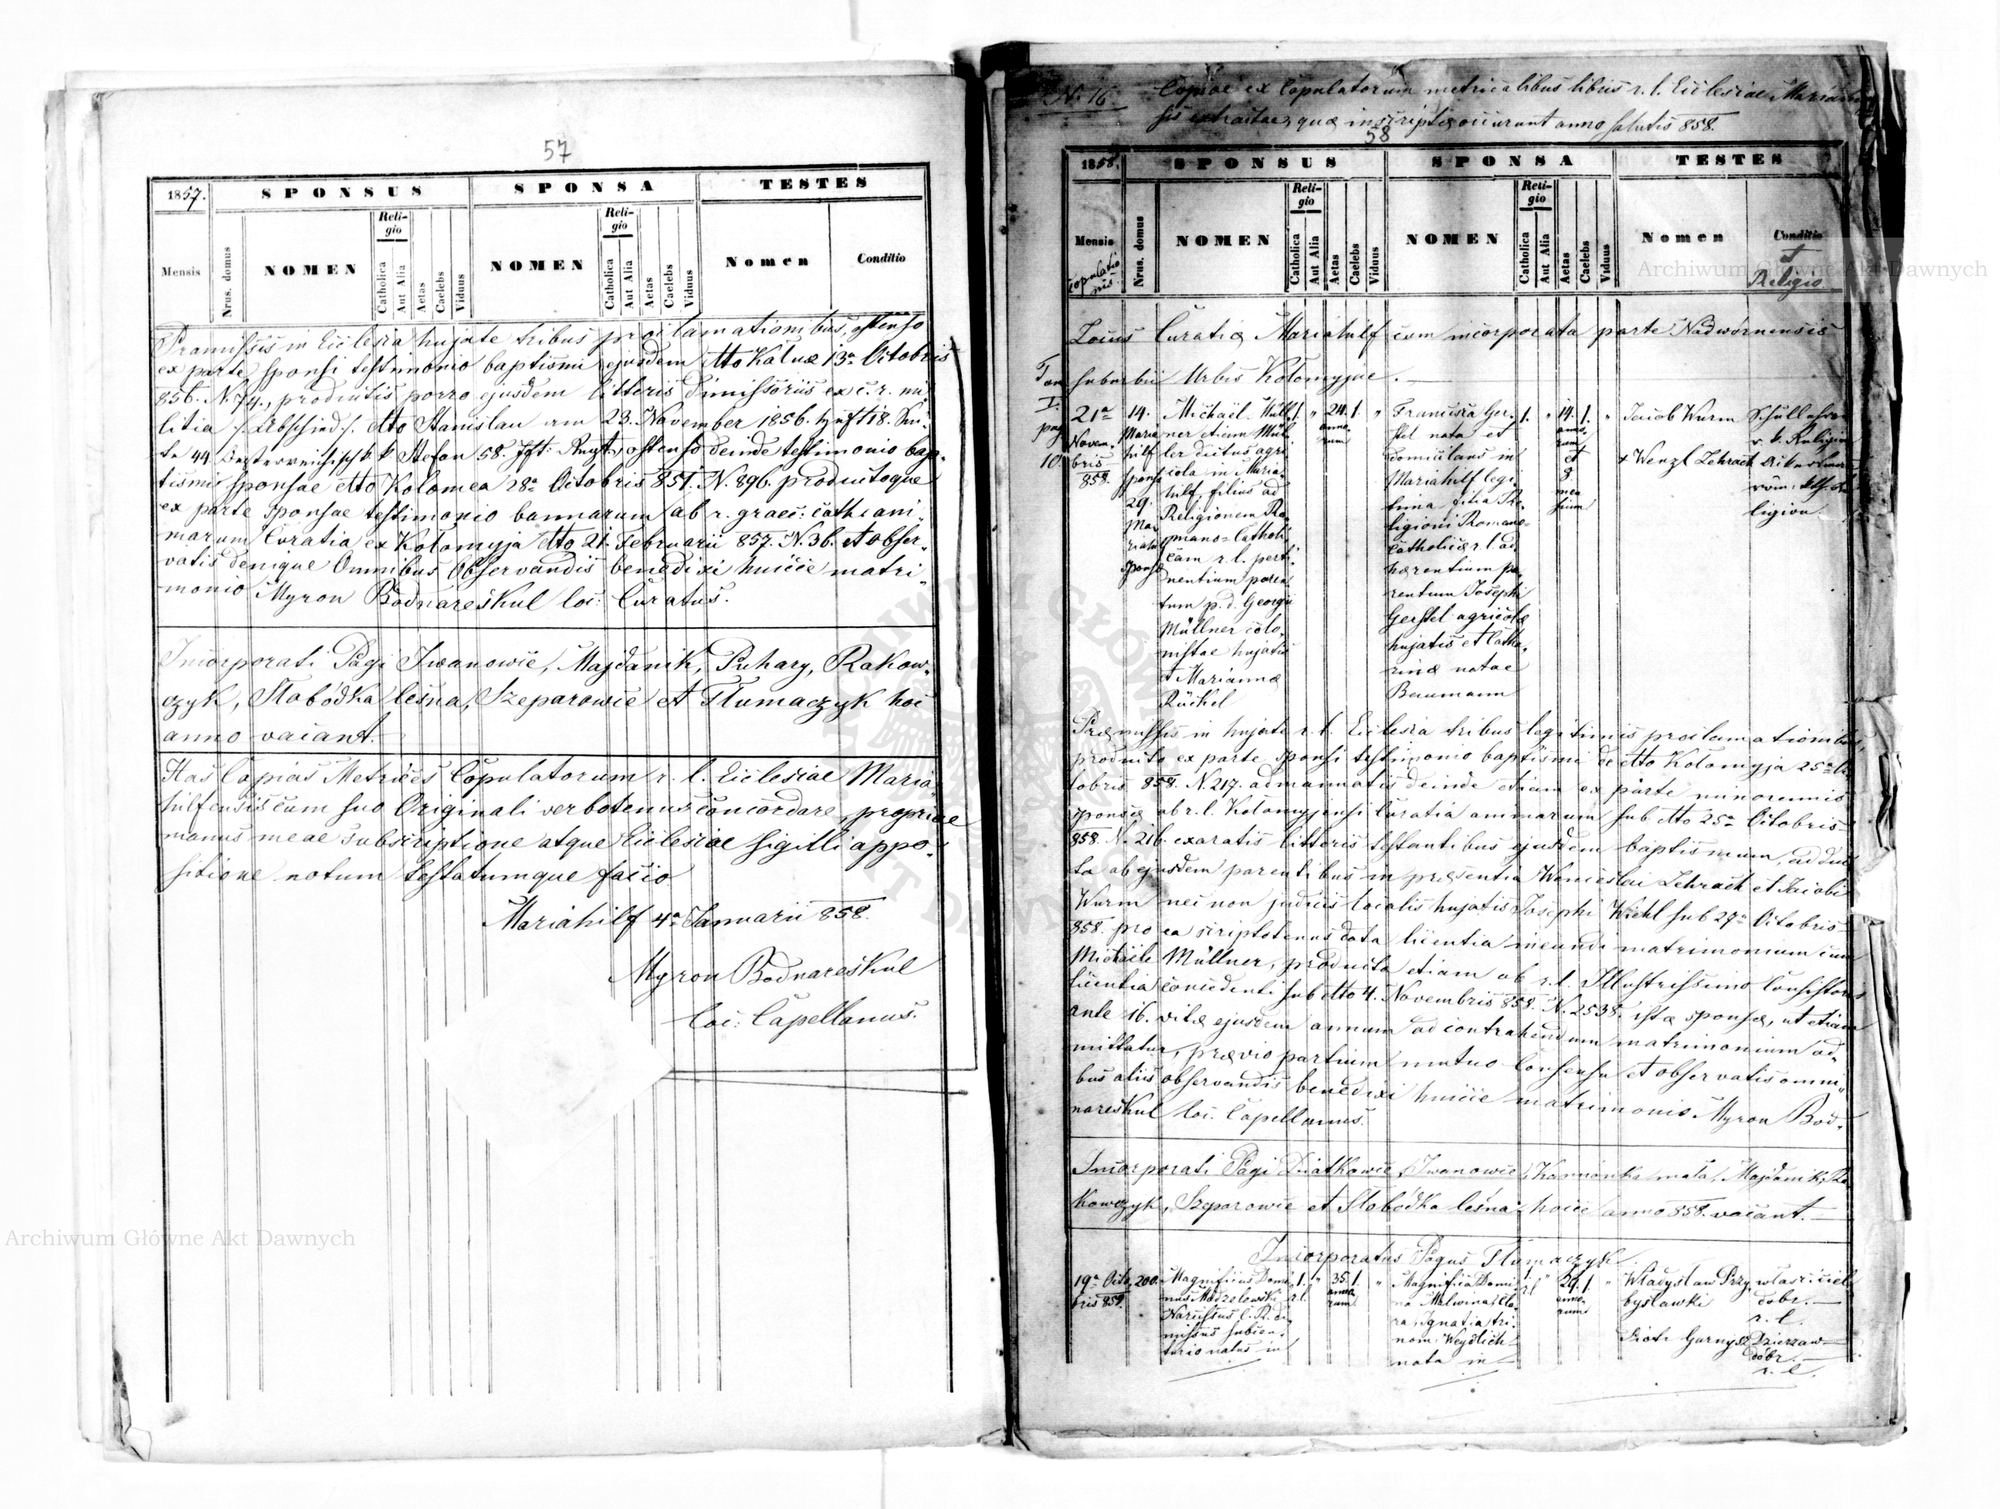 57
1857.
SPONSUS
SPONSA
TESTES
Mensis
Nrus. domus
NOMEN
Religio
Catholica
Aut Alia
Aetas
Caelebs
Viduus
NOMEN
Religio
Catholica
Aut Alia
Aetas
Caelebs
Viduus
Nomen
Conditio
Pramissis in Ecclesia hujate tribus proclamationibus, ostenso
ex parte sponsi testimonio baptismi ejusdem dtto Kałuz 13a Octobris
856. N. 74., productis porro ejusdem litteris dimissoriis ex c. r. mi-
litia /: Abschied :/. dtto Stanislau am 23. November 1856.
58. Inft: Regt, ostenso deinde testimonio bap-
tismi sponsae dtto Kolomea 28a Octobris 851. N. 896. productoque
ex parte sponsae testimonio bannorum ab r. graec: cath: ani-
marum Curatia ex Kołomyja dtto 21. Februarii 857. N. 36. et obser-
vatis denique Omnibus Observandis benedixi huicce matri-
monio Myron Bodnareskul loc: Curatus.
Incorporati Pagi Iwanowce, Majdanik, Puhary, Rakow-
czyk, Słobódka leśna, Szeparowce et Tłumaczyk hoc
anno vacant.
Has Copias Metrices Copulatorum r. l. Ecclesiae Maria-
hilfensis cum suo Originali verbotenus concordare, propriae
manus meae subscriptione atque Ecclesiae sigilli appo-
sitione notum testatumque facio
Mariahilf 4a Januarii 858.
Myron Bodnareskul
loc: Capellanus.
N. 16
Copiae ex Copulatorum metricalibus libris r. l. Ecclesiae Mariahilfen-
sis extractae, quae inscriptae occurunt anno salutis 858.
58
1858.
SPONSUS
SPONSA
TESTES
Mensis
Copulatio
nis
Nrus. domus
NOMEN
Religio
Catholica
Aut Alia
Aetas
Caelebs
Viduus
NOMEN
Religio
Catholica
Aut Alia
Aetas
Caelebs
Viduus
Nomen
Conditio
et
Religio
Locus Curatiae Mariahilf cum incorporata parte Nadwórnensis
suburbii Urbis Kołomyjae.
Tom
I.
pag
10.
21a
Novem-
bris
858.
14.
Maria
hilf
sponsi
29.
Ma-
riahilf
sponsae
Michaël Müll-
ner etiam Mül-
ler dictus agri-
cola in Maria-
hilf, filius ad
Religionem Ro-
mano-Catholi-
cam r. l. perti-
nentium paren-
tum p. d. Georgii
Müllner colo-
nistae hujatis
et Mariannae
Rückel
1.
"
24.
anno-
rum
1.
"
Francisca Ger-
stel nata et
domicilans in
Mariahilf legi-
tima filia Re-
ligioni Romano-
Catholicae r. l. ad-
haerentium pa-
rentum Josephi
Gerstel agricolae
hujatis et Catha-
rinae natae
Baumann
1.
"
14.
anno-
rum
et
8.
men-
sium
1.
"
Jacob Wurm
+ Wenzl Zehrack
Ackersmann
röm. kth. Re-
ligion.
Praemissis in hujate r. l. Ecclesia tribus legitimis proclamationibus,
producto ex parte sponsi testimonio baptismi de dtto Kołomyja 25a Oc-
tobris 858. N. 217. admannatis deinde etiam ex parte minorennis
sponsae ab r. l. Kołomyjensi Curatia animarum sub dtto 25a Octobris
858. N. 216. exaratis litteris testantibus ejusdem baptismum, adduc-
ta ab ejusdem parentibus in praesentia Wenceslai Zehrack et Jacobi
Wurm nec non judicis localis hujatis Josephi Wiehl sub 27a Octobris
858. pro ea scriptotenus data licentia ineundi matrimonium cum
Michaële Müllner, producta etiam ab r. l. Illustrissimo Consistorio
licentia concedenti sub dtto 4. Novembris 858. N. 2538. istae sponsae, ut etiam
ante 16. vitae ejusdem annum ad contrahendum matrimonium ad-
mittatur, praevio partium mutuo Consensu et observatis omni-
bus aliis observandis benedixi huicce matrimonio. Myron Bod-
nareskul loc. Capellanus.
Incorporati Pagi Diatkowce, Iwanowce, Kamionka mała, Majdanik, Ra-
kowczyk, Szeparowce et Słobódka leśna hocce anno 858. vacant.
Incorporatus Pagus Tłumaczyk
19a Octo-
bris 858.
200.
Magnificus Domi-
nus Modzelewski
Narcissus
natus in
1.
r. l.
"
35.
anno-
rum
1.
"
Magnifica Domi-
na Malwina, Cla-
ra, Ignatia tri-
nom: Weydlich
nata in
1.
r. l.
"
29.
anno-
rum
1.
"
Władysław Przy-
bysławski
właściciel
dóbr.
r. l.
Piotr Garnysz
Dzierzaw-
dóbr.
r. l.
Archiwum Główne Akt Dawnych
Archiwum Główne Akt Dawnych